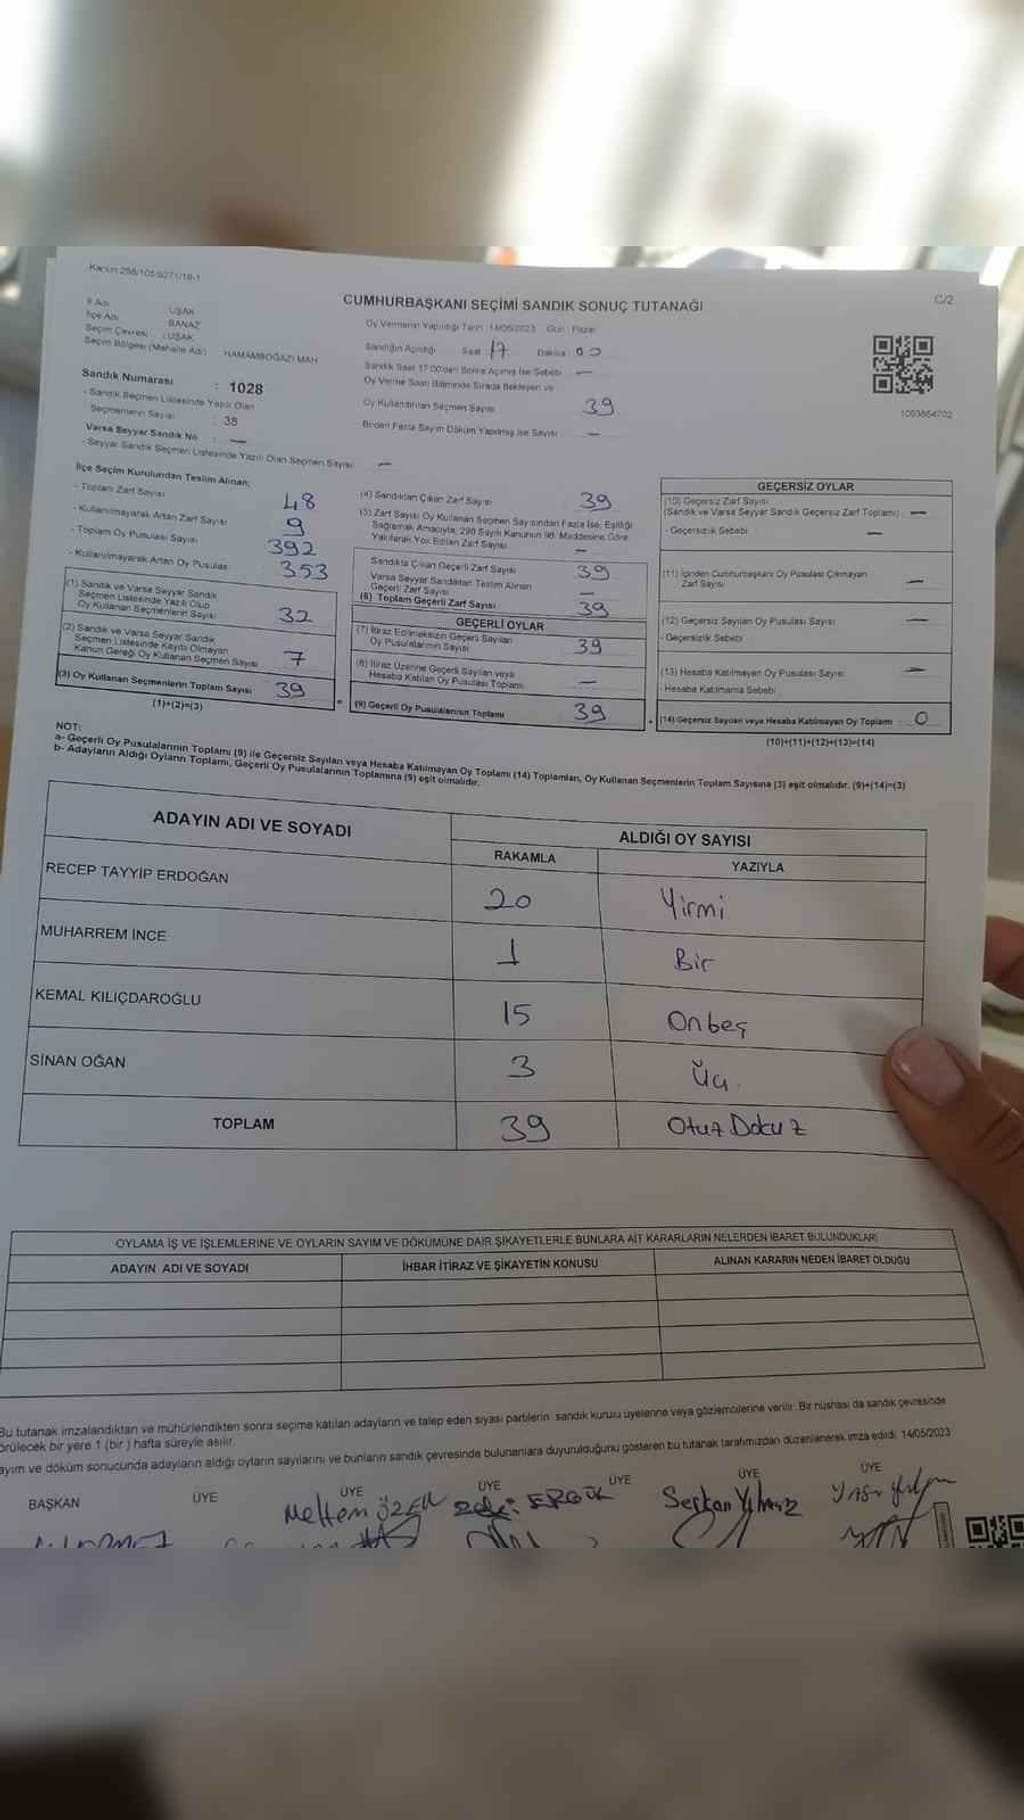 Kanun 298/105 6271/19-1
C/2
CUMHURBAŞKANI SEÇİMİ SANDIK SONUÇ TUTANAĞI
İl Adı UŞAK
İlçe Adı BANAZ
Seçim Çevresi : UŞAK
Seçim Bölgesi (Mahalle Adı) HAMAMBOĞAZI MAH
Oy Vermenin Yapıldığı Tarih : 14/05/2023 Gün : Pazar
Sandığın Açıldığı Saat : 17 Dakika : 00
Sandık Saat 17:00'den Sonra Açılmış İse Sebebi —
Oy Verme Saati Bitiminde Sırada Bekleyen ve
Oy Kullandırılan Seçmen Sayısı 39
Birden Fazla Sayım Döküm Yapılmış İse Sayısı —
Sandık Numarası : 1028
- Sandık Seçmen Listesinde Yazılı Olan
Seçmenlerin Sayısı : 38
Varsa Seyyar Sandık No : —
- Seyyar Sandık Seçmen Listesinde Yazılı Olan Seçmen Sayısı —
1093864702
İlçe Seçim Kurulundan Teslim Alınan;
- Toplam Zarf Sayısı 48
- Kullanılmayarak Artan Zarf Sayısı 9
- Toplam Oy Pusulası Sayısı 392
- Kullanılmayarak Artan Oy Pusulası 353
(1) Sandık ve Varsa Seyyar Sandık
Seçmen Listesinde Yazılı Olup
Oy Kullanan Seçmenlerin Sayısı 32
(2) Sandık ve Varsa Seyyar Sandık
Seçmen Listesinde Kaydı Olmayan
Kanun Gereği Oy Kullanan Seçmen Sayısı 7
(3) Oy Kullanan Seçmenlerin Toplam Sayısı 39
(1)+(2)=(3)
(4) Sandıktan Çıkan Zarf Sayısı 39
(5) Zarf Sayısı Oy Kullanan Seçmen Sayısından Fazla İse, Eşitliği
Sağlamak Amacıyla, 298 Sayılı Kanunun 98. Maddesine Göre
Yakılarak Yok Edilen Zarf Sayısı —
Sandıkta Çıkan Geçerli Zarf Sayısı 39
Varsa Seyyar Sandıktan Teslim Alınan
Geçerli Zarf Sayısı —
(6) Toplam Geçerli Zarf Sayısı 39
GEÇERLİ OYLAR
(7) İtiraz Edilmeksizin Geçerli Sayılan
Oy Pusulalarının Sayısı 39
(8) İtiraz Üzerine Geçerli Sayılan veya
Hesaba Katılan Oy Pusulası Toplamı —
(9) Geçerli Oy Pusulalarının Toplamı 39
GEÇERSİZ OYLAR
(10) Geçersiz Zarf Sayısı
(Sandık ve Varsa Seyyar Sandık Geçersiz Zarf Toplamı) —
- Geçersizlik Sebebi —
(11) İçinden Cumhurbaşkanı Oy Pusulası Çıkmayan
Zarf Sayısı —
(12) Geçersiz Sayılan Oy Pusulası Sayısı —
- Geçersizlik Sebebi
(13) Hesaba Katılmayan Oy Pusulası Sayısı —
- Hesaba Katılmama Sebebi
(14) Geçersiz Sayılan veya Hesaba Katılmayan Oy Toplamı 0
(10)+(11)+(12)+(13)=(14)
NOT:
a- Geçerli Oy Pusulalarının Toplamı (9) ile Geçersiz Sayılan veya Hesaba Katılmayan Oy Toplamı (14) Toplamları, Oy Kullanan Seçmenlerin Toplam Sayısına (3) eşit olmalıdır. (9)+(14)=(3)
b- Adayların Aldığı Oyların Toplamı, Geçerli Oy Pusulalarının Toplamına (9) eşit olmalıdır.
ADAYIN ADI VE SOYADI ALDIĞI OY SAYISI
RAKAMLA YAZIYLA
RECEP TAYYİP ERDOĞAN 20 Yirmi
MUHARREM İNCE 1 Bir
KEMAL KILIÇDAROĞLU 15 Onbeş
SİNAN OĞAN 3 Üç
TOPLAM 39 Otuz Dokuz
OYLAMA İŞ VE İŞLEMLERİNE VE OYLARIN SAYIM VE DÖKÜMÜNE DAİR ŞİKAYETLERLE BUNLARA AİT KARARLARIN NELERDEN İBARET BULUNDUKLARI
ADAYIN ADI VE SOYADI İHBAR İTİRAZ VE ŞİKAYETİN KONUSU ALINAN KARARIN NEDEN İBARET OLDUĞU
Bu tutanak imzalandıktan ve mühürlendikten sonra seçime katılan adayların ve talep eden siyasi partilerin sandık kurulu üyelerine veya gözlemcilerine verilir. Bir nüshası da sandık çevresinde
örülecek bir yere 1 (bir) hafta süreyle asılır.
ayım ve döküm sonucunda adayların aldığı oyların sayılarını ve bunların sandık çevresinde bulunanlara duyurulduğunu gösteren bu tutanak tarafımızdan düzenlenerek imza edildi. 14/05/2023
BAŞKAN ÜYE ÜYE ÜYE ÜYE ÜYE ÜYE
Meltem ÖZEN ERGÜL Serkan Yılmaz